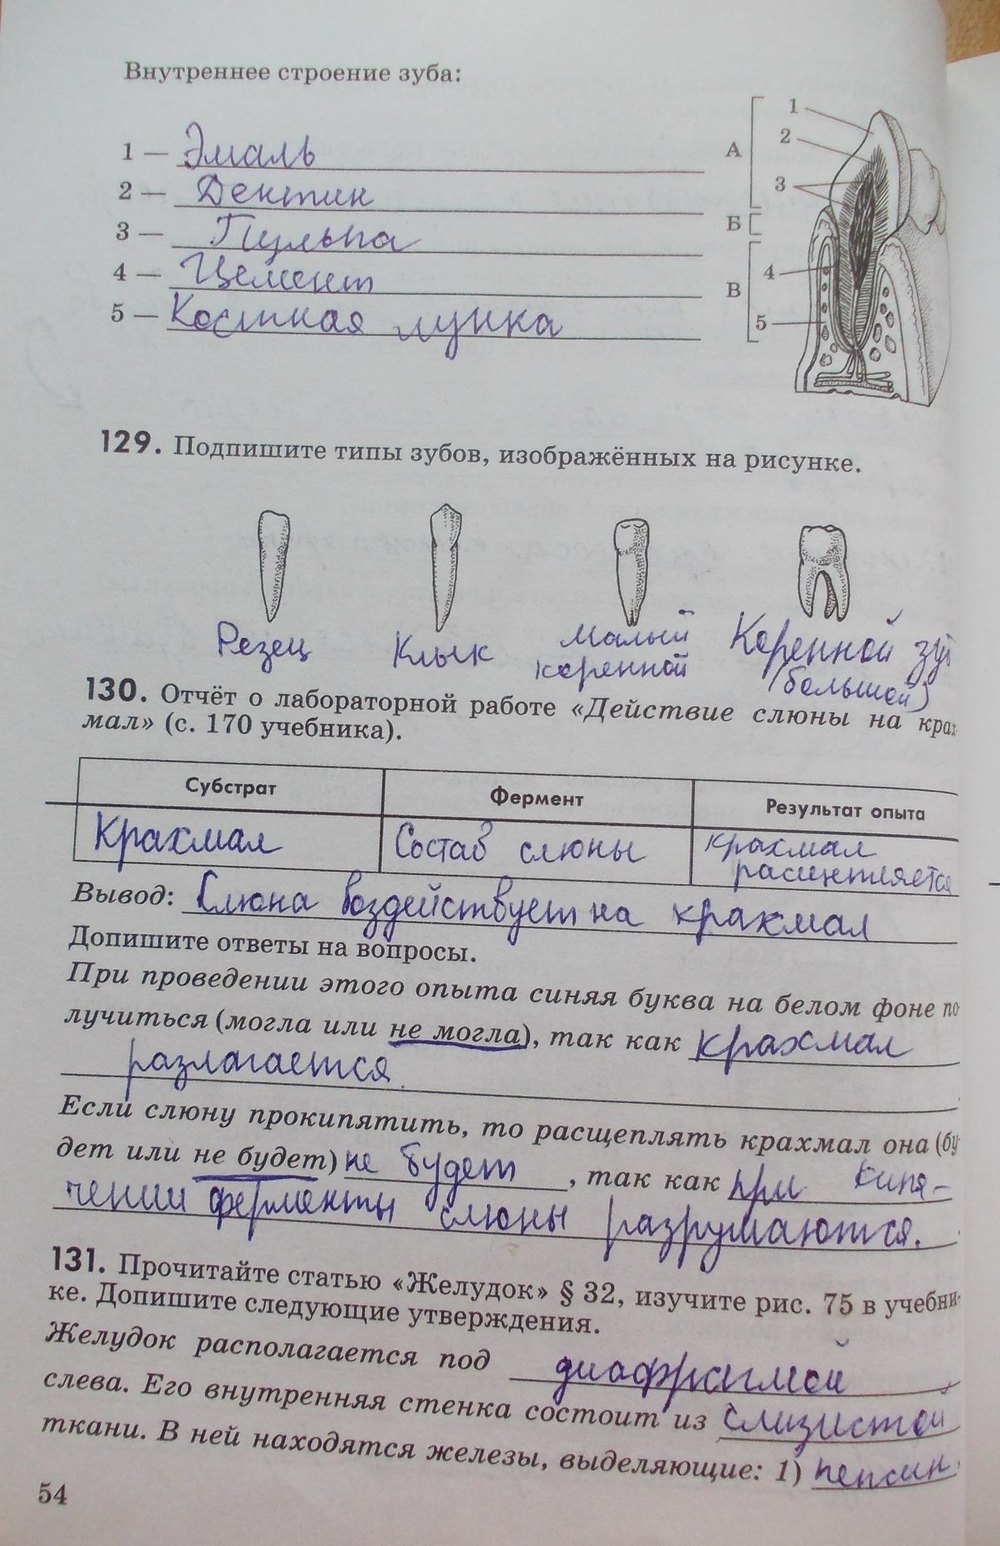 Внутреннее строение зуба:
1 — Эмаль
2 — Дентин
3 — Пульпа
4 — Цемент
5 — Костная лунка
1
2
А
3
Б
4
В
5
129. Подпишите типы зубов, изображённых на рисунке.
Резец
Клык
Малый
коренной
Коренной зу
(большой)
130. Отчёт о лабораторной работе «Действие слюны на крах
мал» (с. 170 учебника).
Субстрат
Фермент
Результат опыта
Крахмал
Состав слюны
крахмал
расщепляется
Вывод: Слюна воздействует на крахмал
Допишите ответы на вопросы.
При проведении этого опыта синяя буква на белом фоне по
лучиться (могла или не могла), так как крахмал
разлагается.
Если слюну прокипятить, то расщеплять крахмал она (бу
дет или не будет) не будет, так как при кипя-
чении ферменты слюны разрушаются.
131. Прочитайте статью «Желудок» § 32, изучите рис. 75 в учебни-
ке. Допишите следующие утверждения.
Желудок располагается под диафрагмой
слева. Его внутренняя стенка состоит из слизистой
ткани. В ней находятся железы, выделяющие: 1) пепсин
54